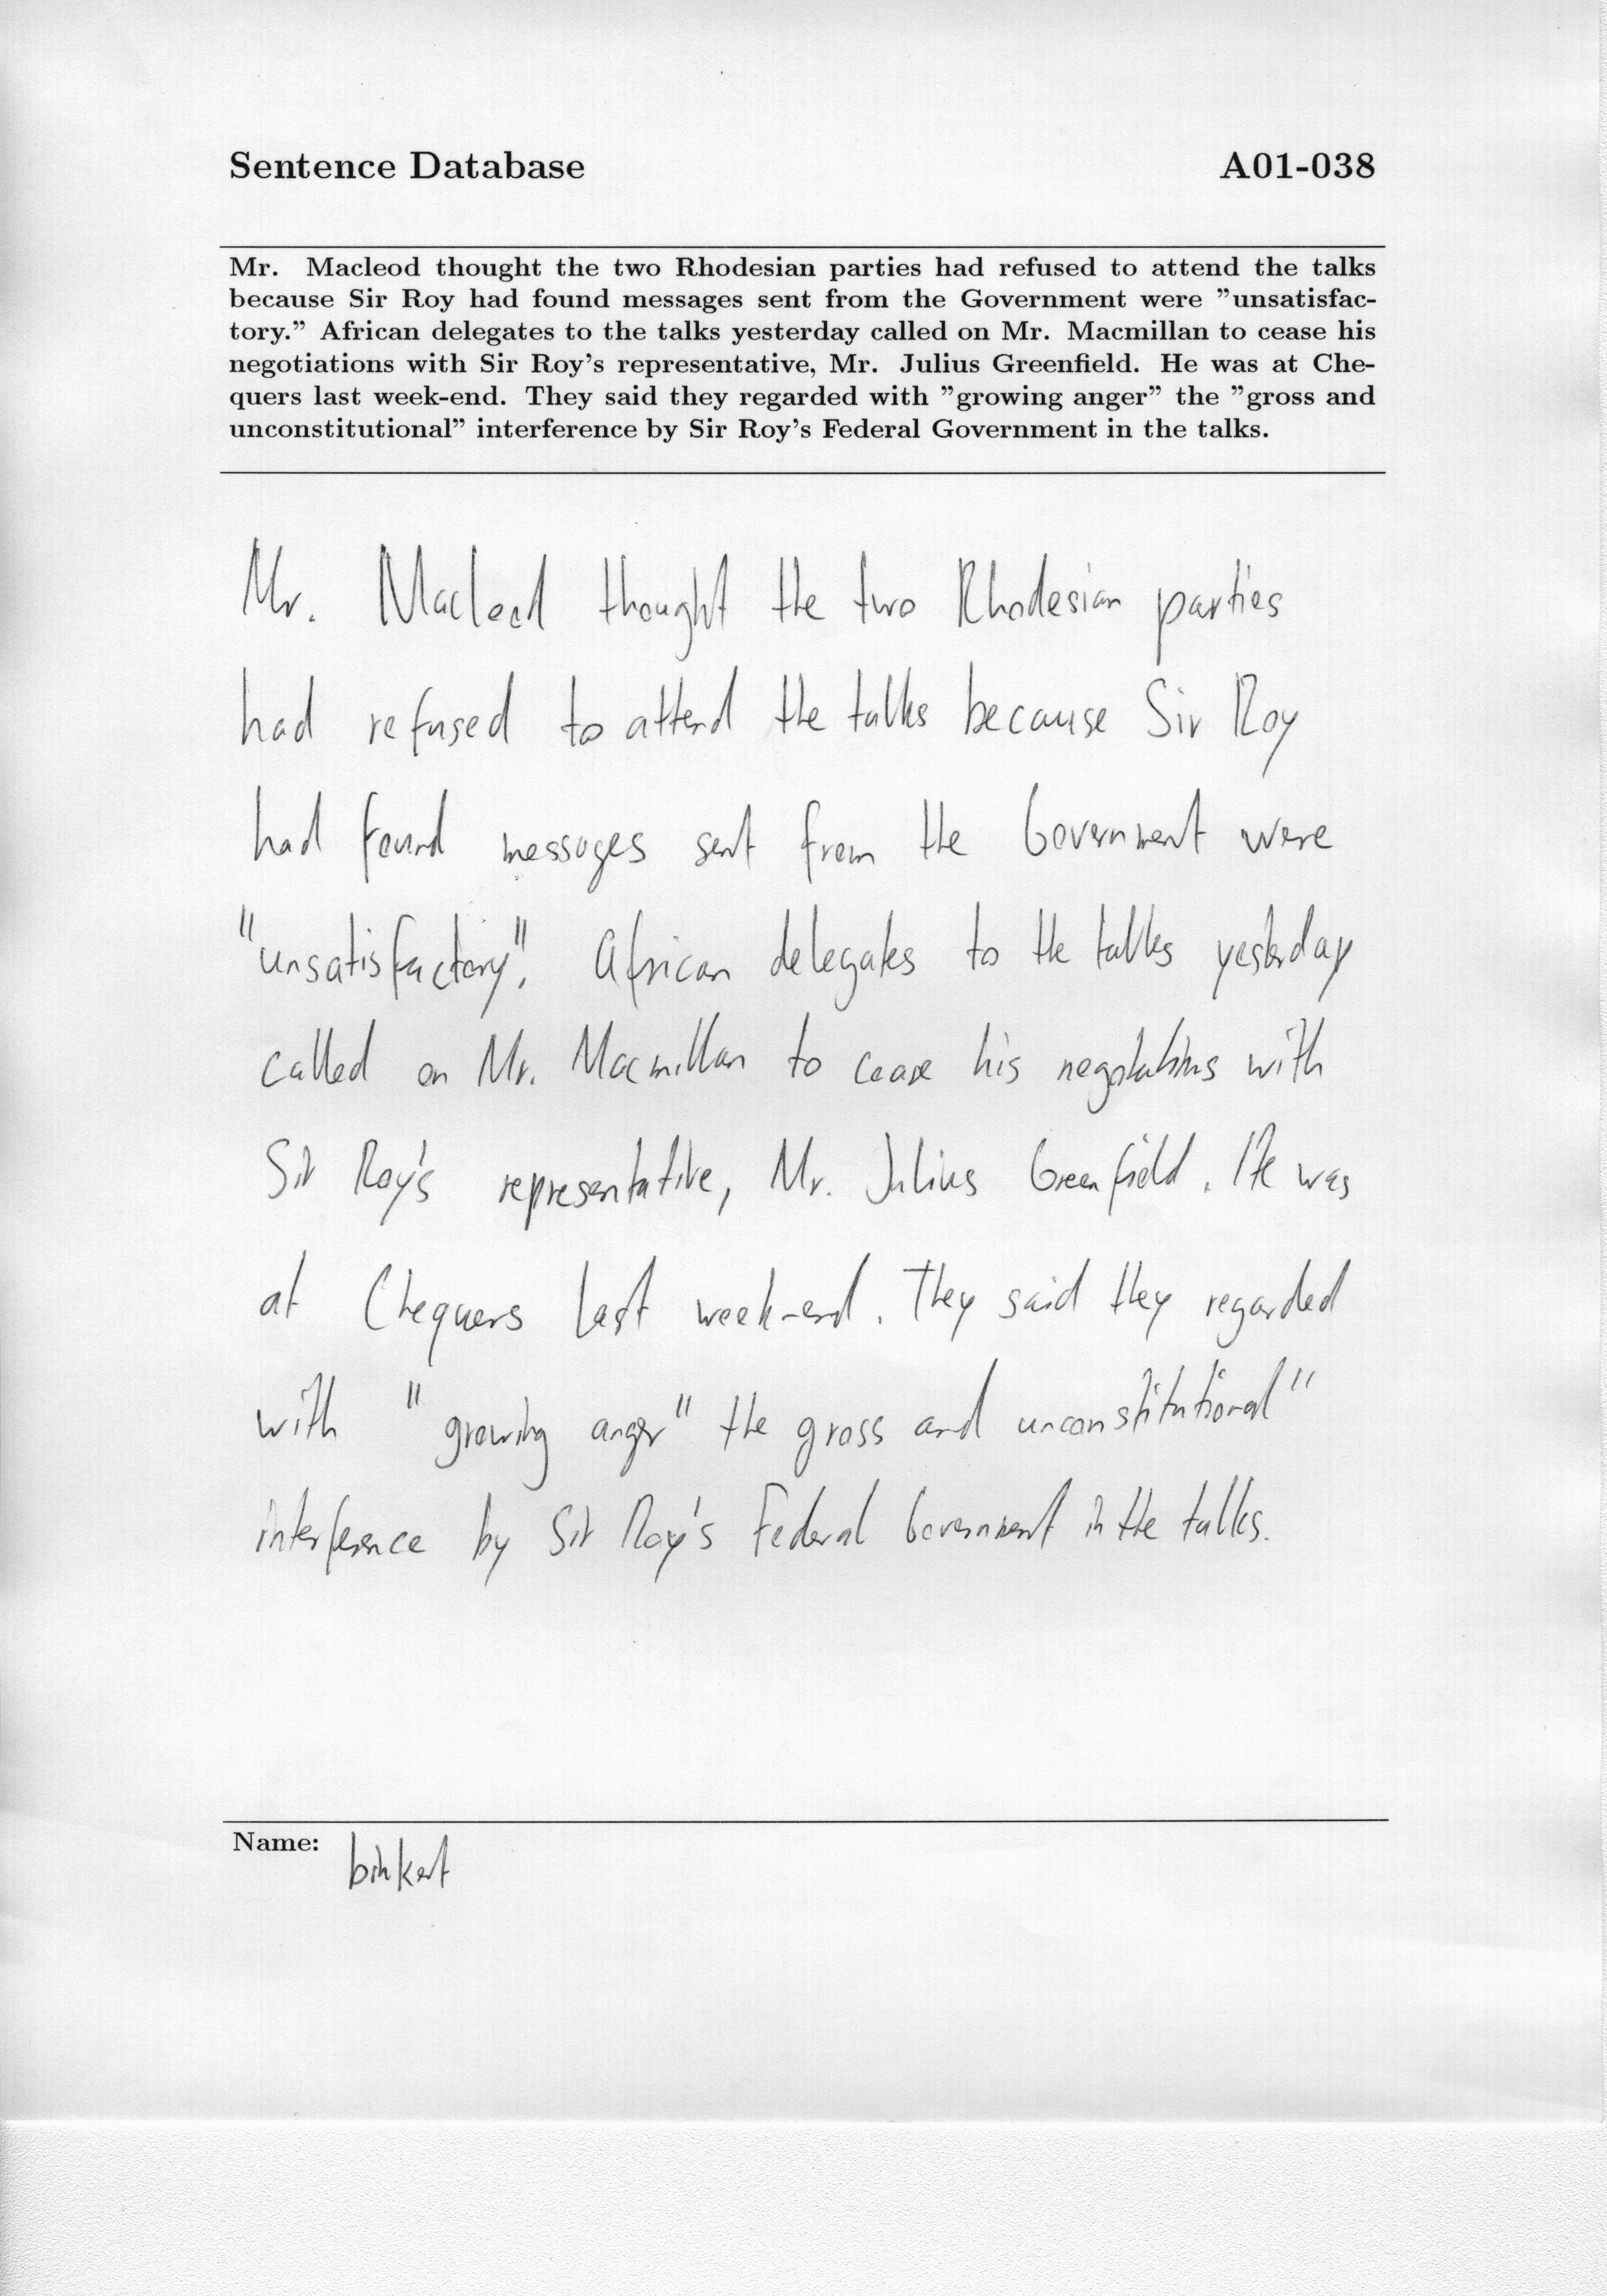 Sentence Database A01-038
Mr. Macleod thought the two Rhodesian parties had refused to attend the talks
because Sir Roy had found messages sent from the Government were "unsatisfac-
tory." African delegates to the talks yesterday called on Mr. Macmillan to cease his
negotiations with Sir Roy's representative, Mr. Julius Greenfield. He was at Che-
quers last week-end. They said they regarded with "growing anger" the "gross and
unconstitutional" interference by Sir Roy's Federal Government in the talks.
Mr. Macleod thought the two Rhodesian parties
had refused to attend the talks because Sir Roy
had found messages sent from the Government were
"unsatisfactory". African delegates to the talks yesterday
called on Mr. Macmillan to cease his negotiations with
Sir Roy's representative, Mr. Julius Greenfield. He was
at Chequers last week-end. They said they regarded
with "growing anger" the gross and unconstitutional"
interference by Sir Roy's Federal Government in the talks.
Name: binkert